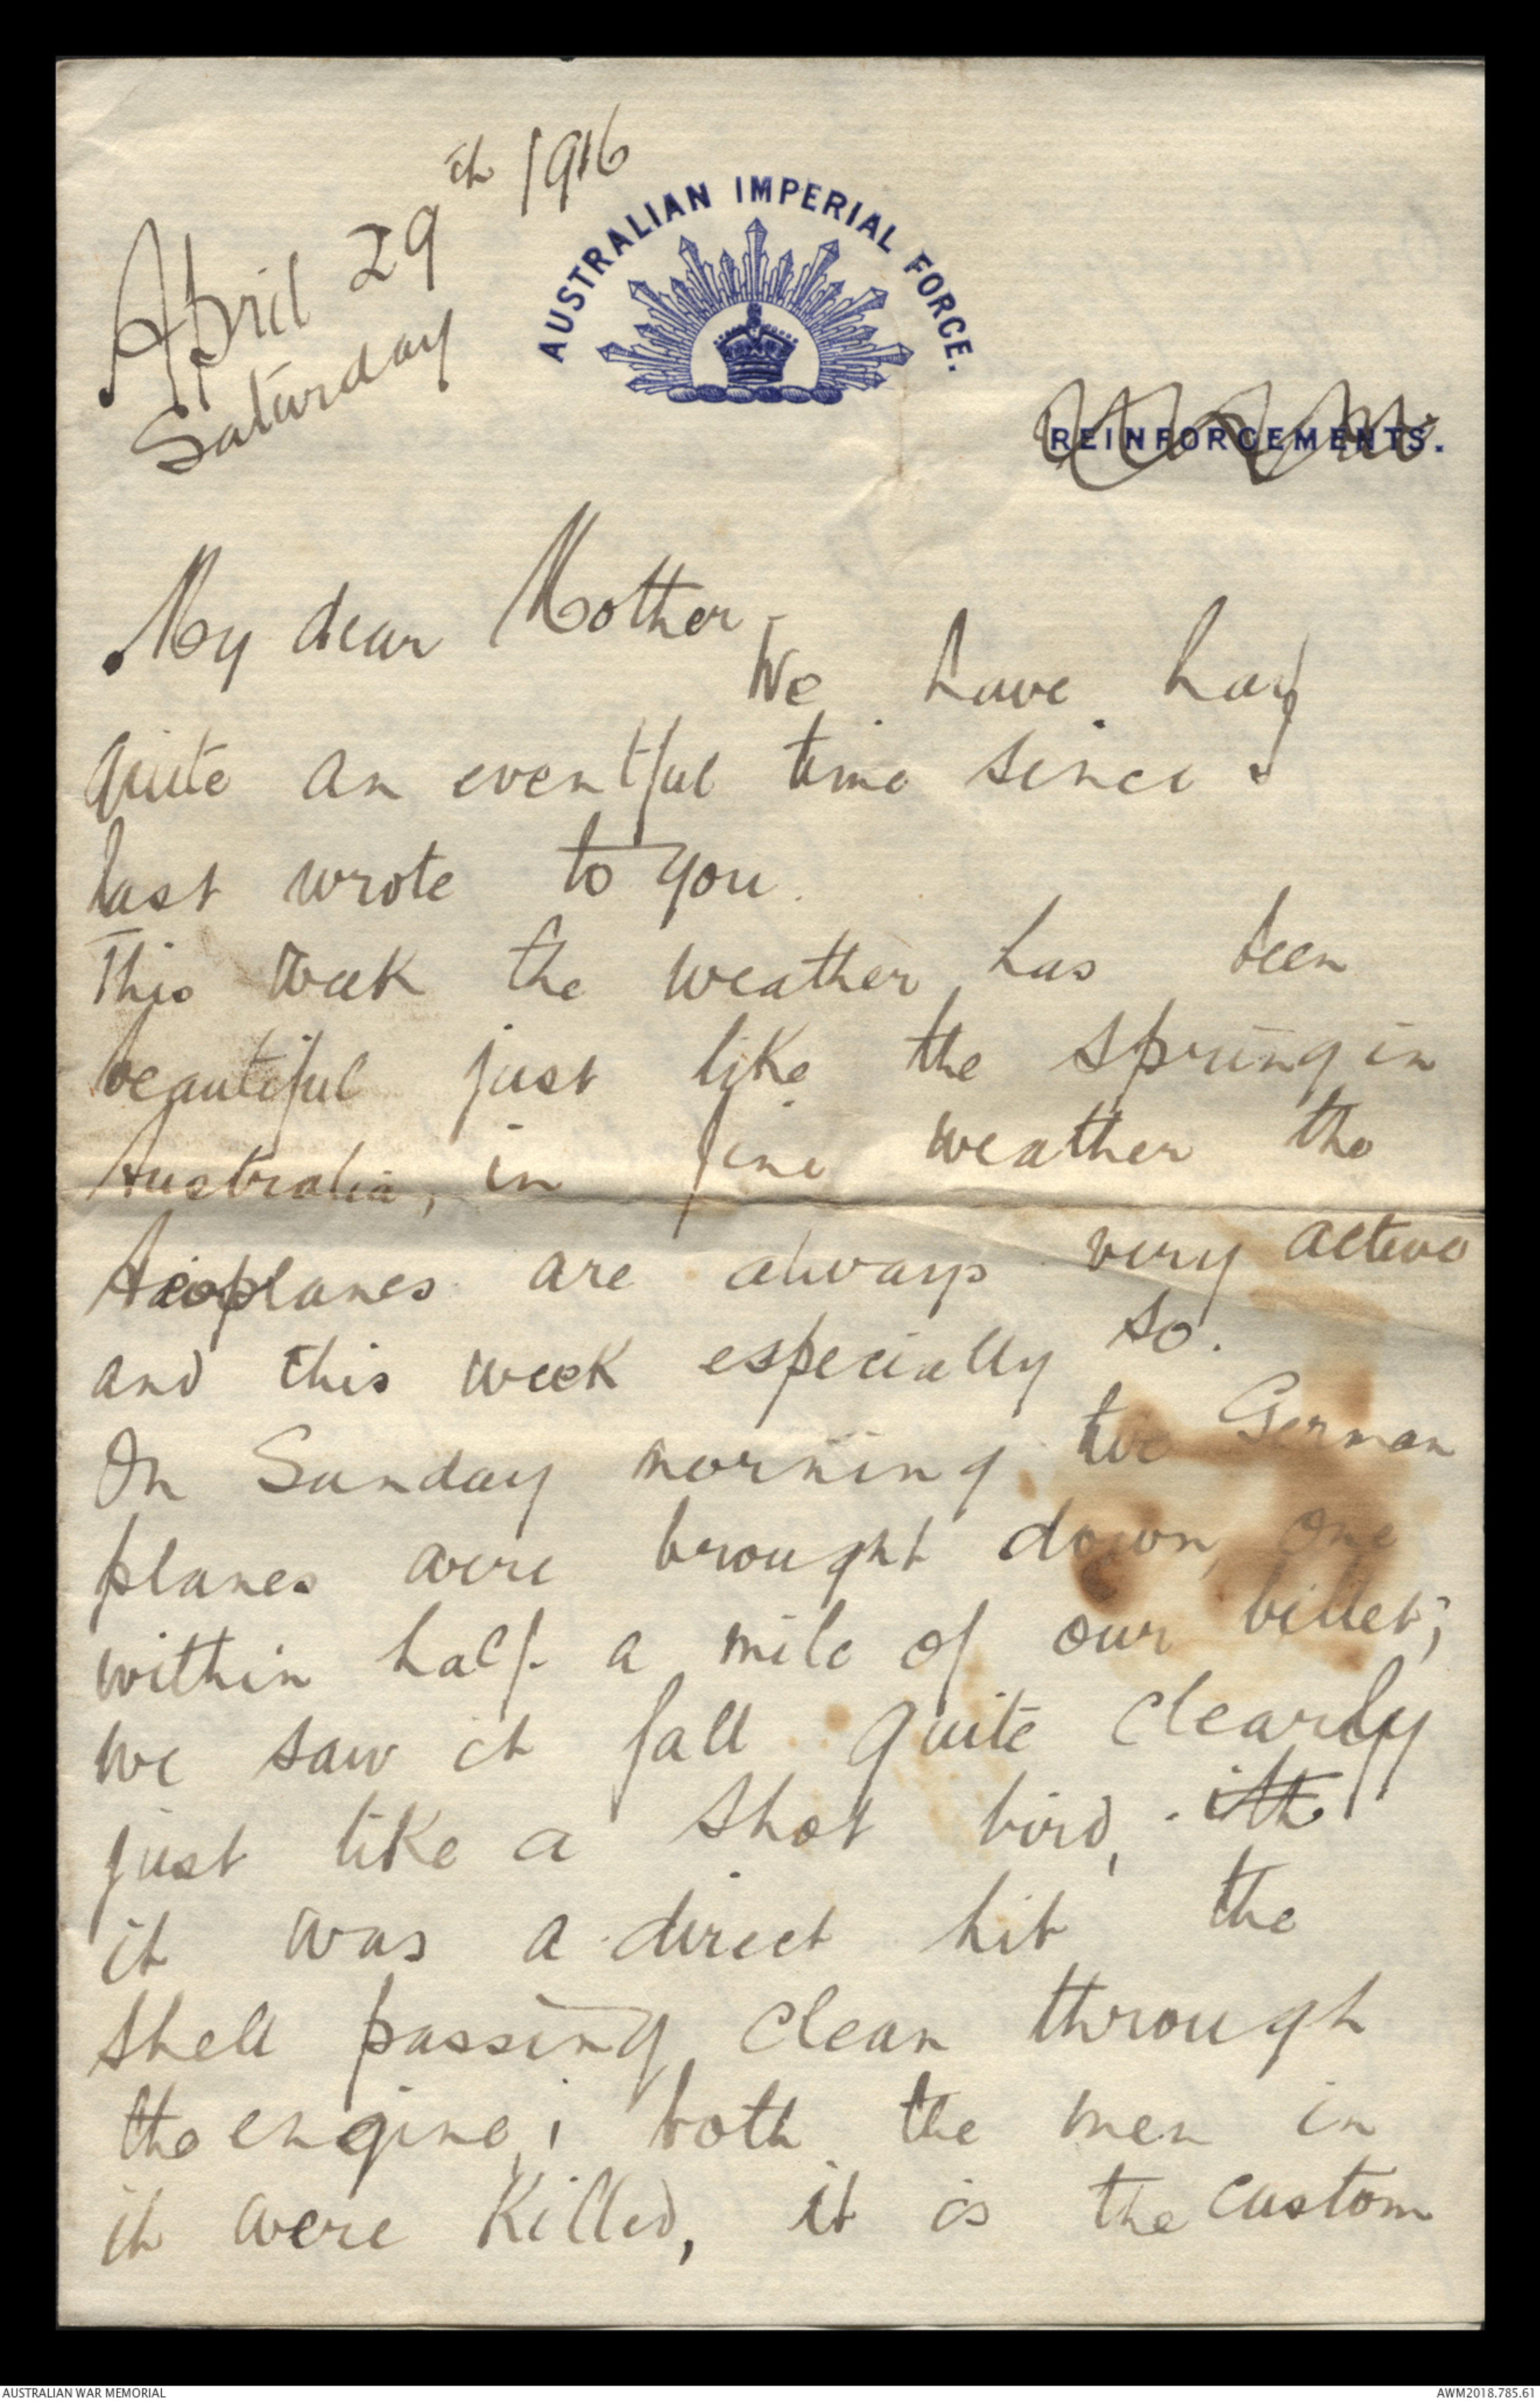 April 29th 1916
Saturday
AUSTRALIAN IMPERIAL FORCE.
REINFORCEMENTS.
My dear Mother -
We have had
quite an eventful time since I
last wrote to you.
This week the weather has been
beautiful just like the spring in
Australia, in fine weather the
Aeoplanes are always very active
and this week especially so.
On Sunday morning two German
planes were brought down, one
within half a mile of our billet;
we saw it fall quite clearly
just like a shot bird, ith
it was a direct hit the
shell passing clean through
the engine; both the men in
it were killed, it is the custom
AUSTRALIAN WAR MEMORIAL
AWM2018.785.61